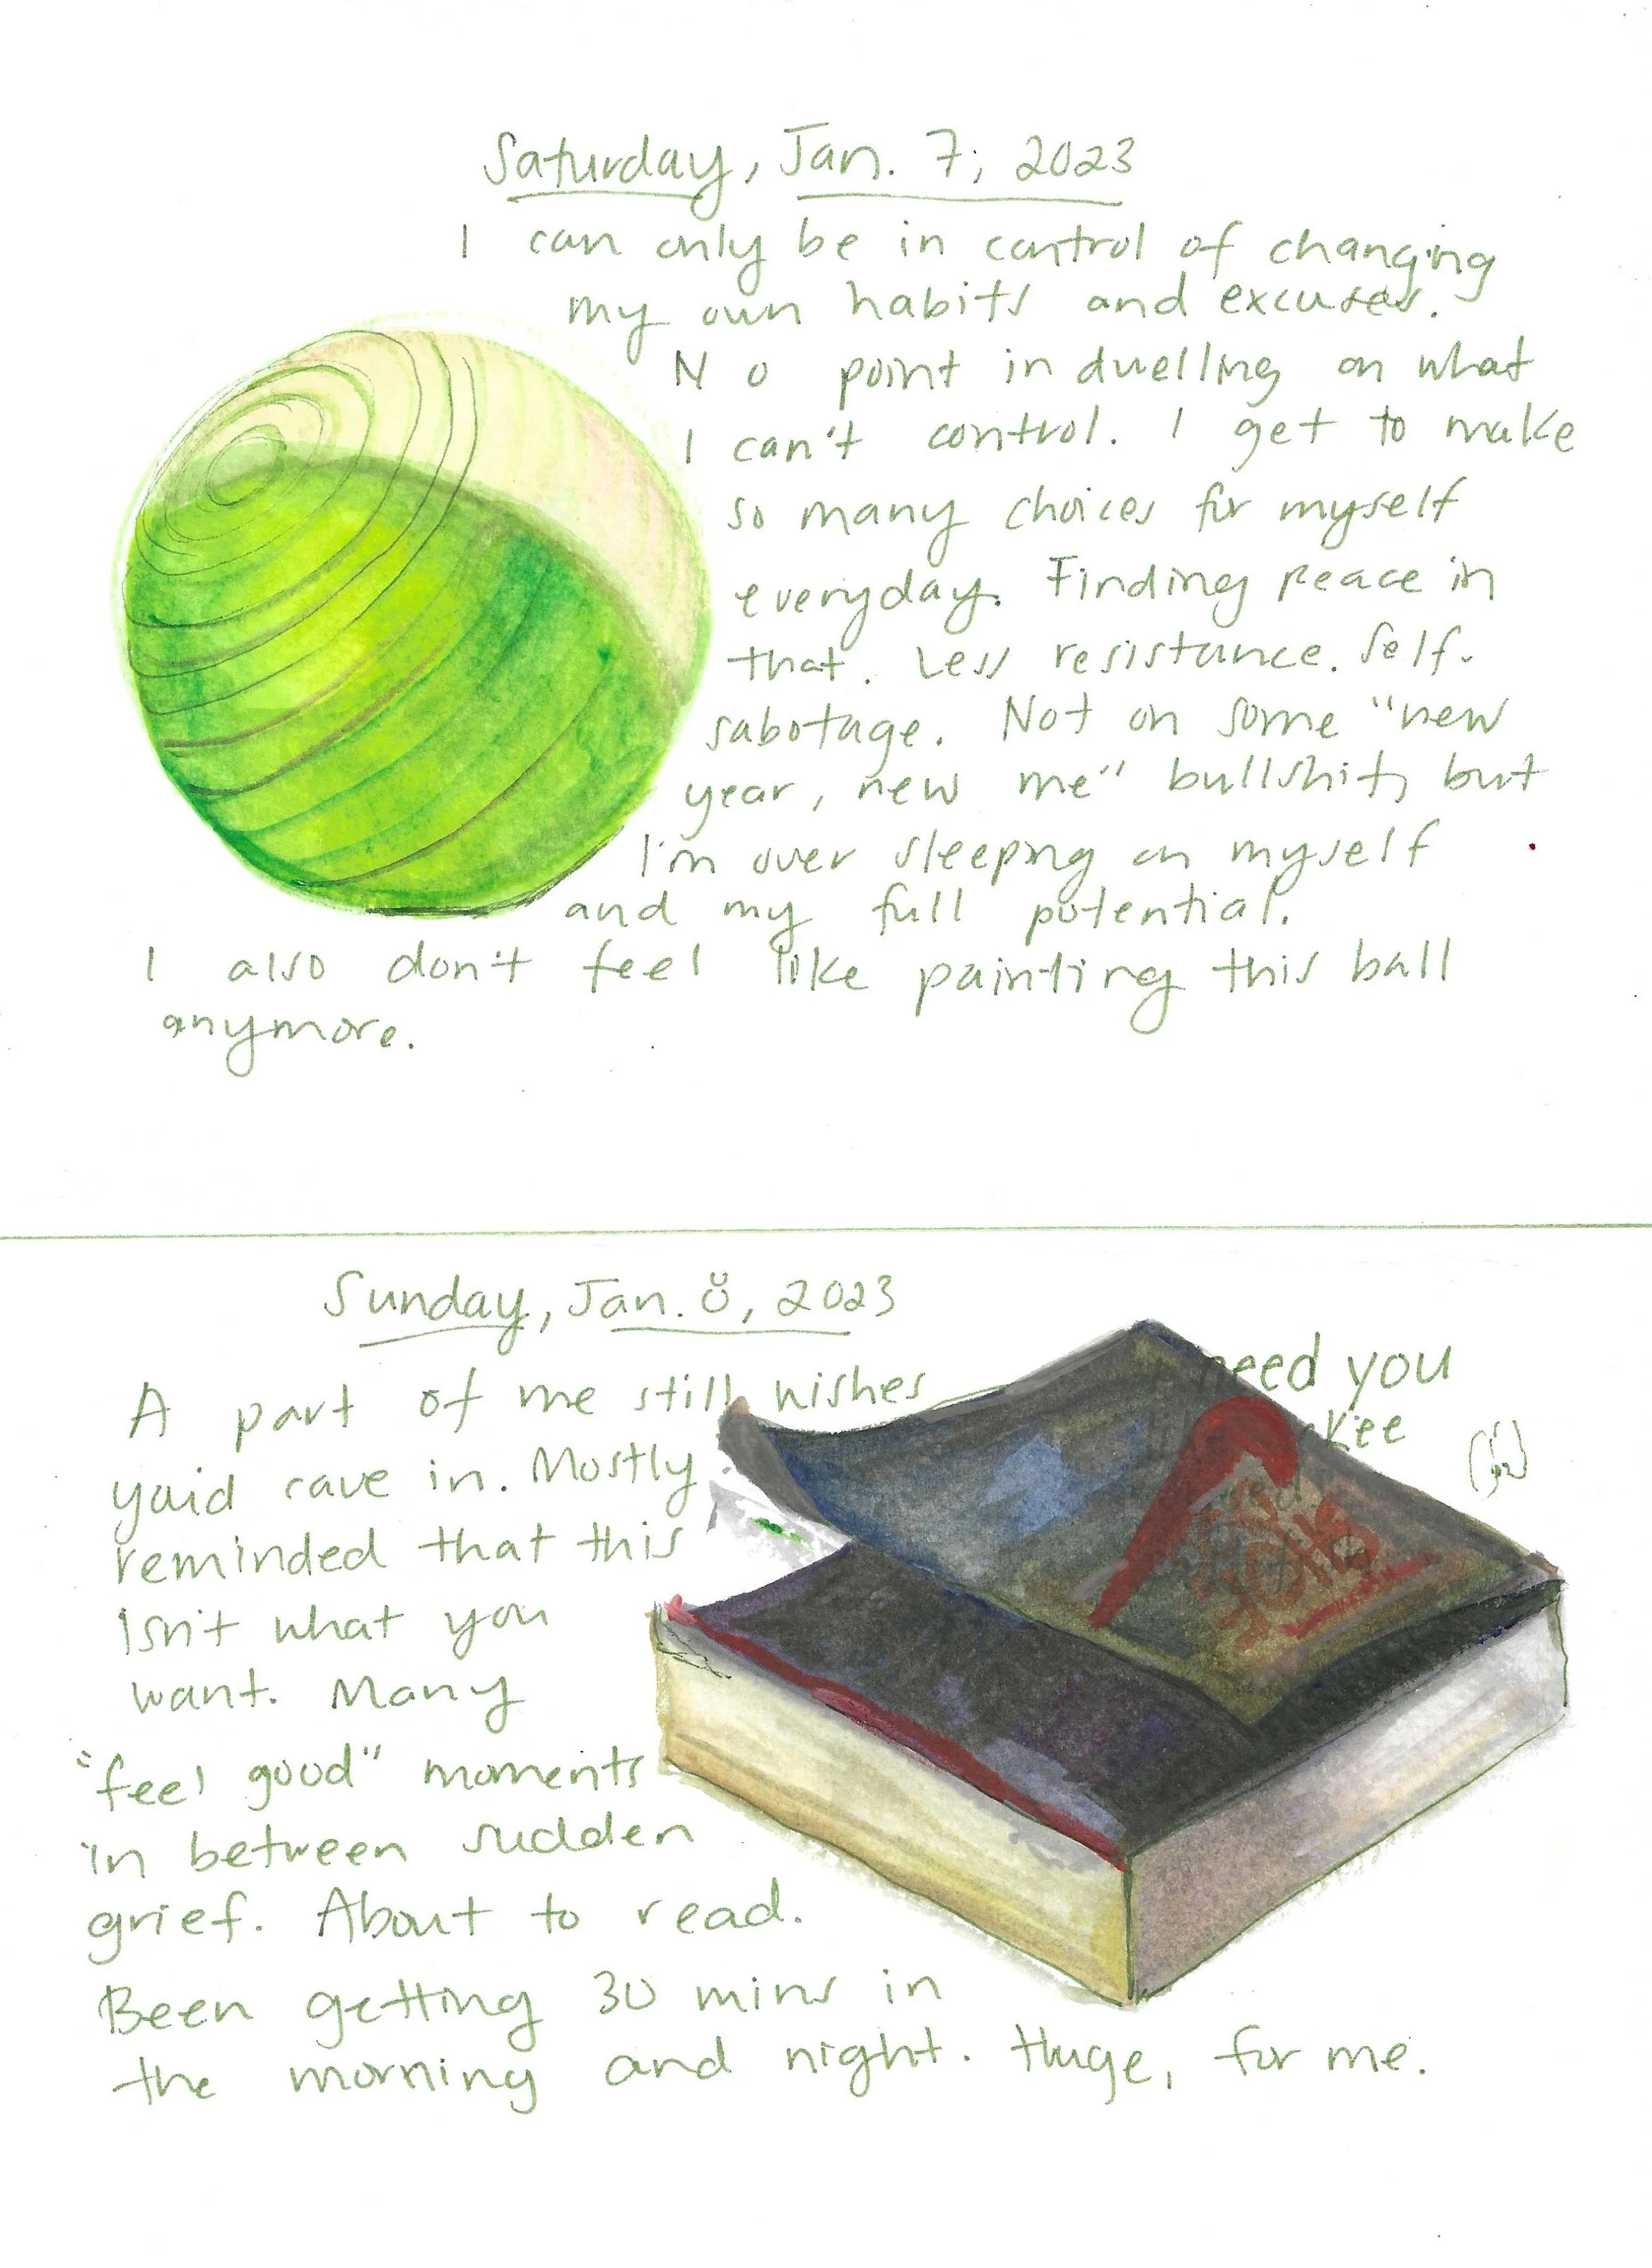 Saturday, Jan. 7, 2023
I can only be in control of changing
my own habits and excuses.
No point in dwelling on what
I can't control. I get to make
so many choices for myself
everyday. Finding peace in
that. Less resistance. Self-
sabotage. Not on some "new
year, new me" bullshit, but
I'm over sleeping on myself
and my full potential.
I also don't feel like painting this ball
anymore.
Sunday, Jan. 8, 2023
A part of me still wishes
you'd cave in. Mostly
reminded that this
isn't what you
want. Many
"feel good" moments
in between sudden
grief. About to read.
Been getting 30 mins in
the morning and night. Huge, for me.
need you